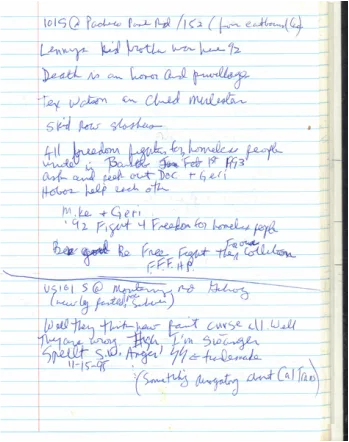 101 S @ Pacheco Pass Rd /152 (from eastbound
Lennys kid brother was here 92
Death is an honor and privillage
Tex Watson an Child Molester
Skid Row Slasher
All freedom fights for homeless people
under in Feb 1st 1993
ask and seek out Doc + Geri
Hobos help each oth
Mike + Geri
'92 Figurt 4 Freedom for homeless people
Be Free Fegurt They Collition
F.F.F.H.P.
US101 S @ Monterey Rd
(newly painted,
Well they think new paint curse all. Well
They are wrong. I'm Swanger
Spellt S.W. Anger trademark
11-15-95
(Something derogatory about CalTrans)